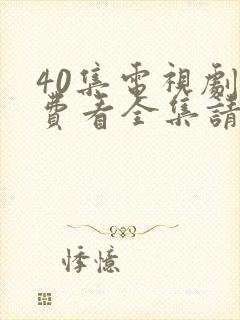 40集電視劇
費看全集請
悸憶